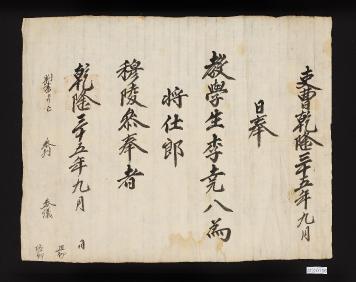 吏曹乾隆三十五年九月
日奉
教學生李堯八為
將仕郎
穆陵參奉者
乾隆三十五年九月 日
參判
參議
正郎
佐郎